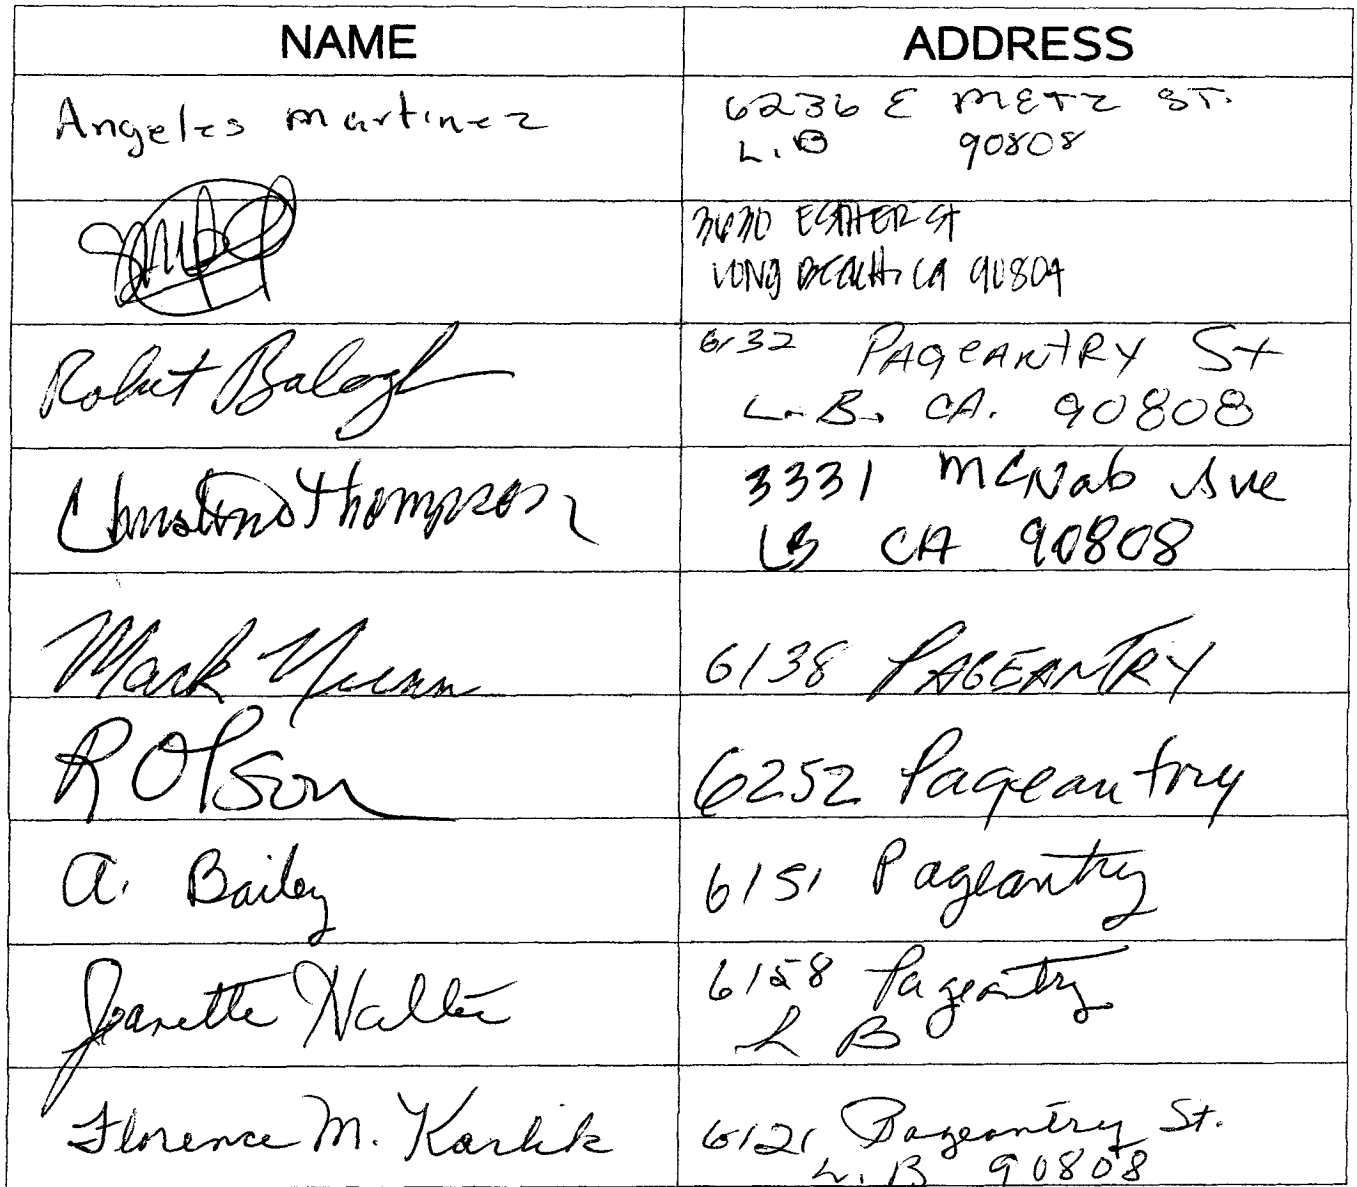 NAME ADDRESS
Angeles Martinez 6236 E METZ ST.
L.B 90808
3630 ESTHER ST
LONG BEACH, CA 90804
Robert Balogh 6132 PAGEANTRY St
L.B. CA. 90808
Christine Thompson 3331 McNab Ave
LB CA 90808
Mark Nunn 6138 PAGEANTRY
R Olson 6252 Pageantry
A. Bailey 6151 Pageantry
Jeanette 6158 Pageantry
L B
Florence M. Karlik 6121 Pageantry St.
L.B 90808